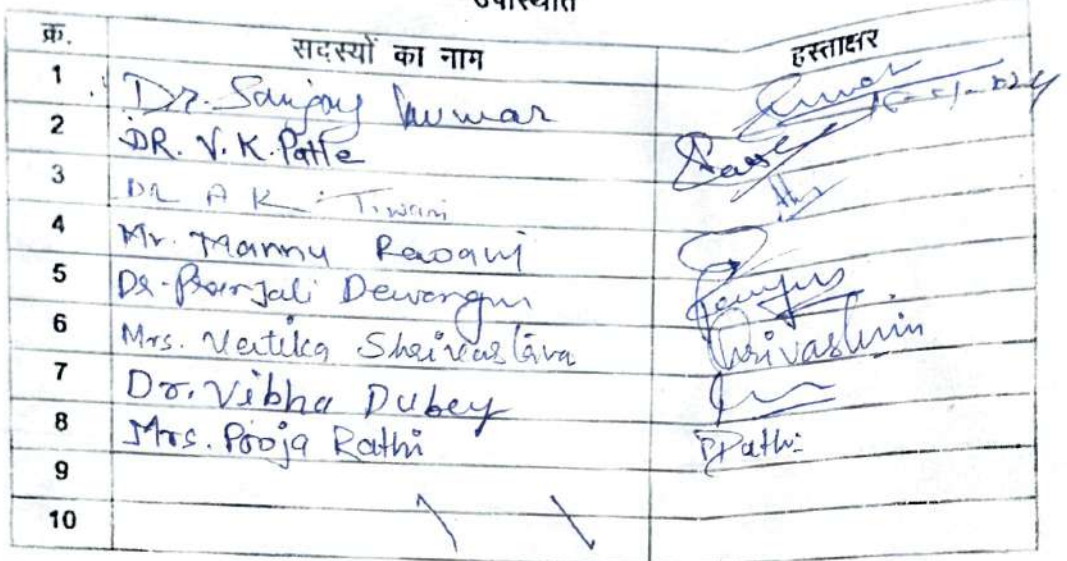 उपस्थिति
क्र. सदस्यों का नाम हस्ताक्षर
1 Dr. Sanjay Kumar
2 DR. V.K. Patle
3 DR A K Tiwari
4 Mr. Mannu
5 Dr. Pranjali Dewangan
6 Mrs. Vertika Shrivastava Shrivastava
7 Dr. Vibha Dubey
8 Mrs. Pooja Rathi PRathi
9
10